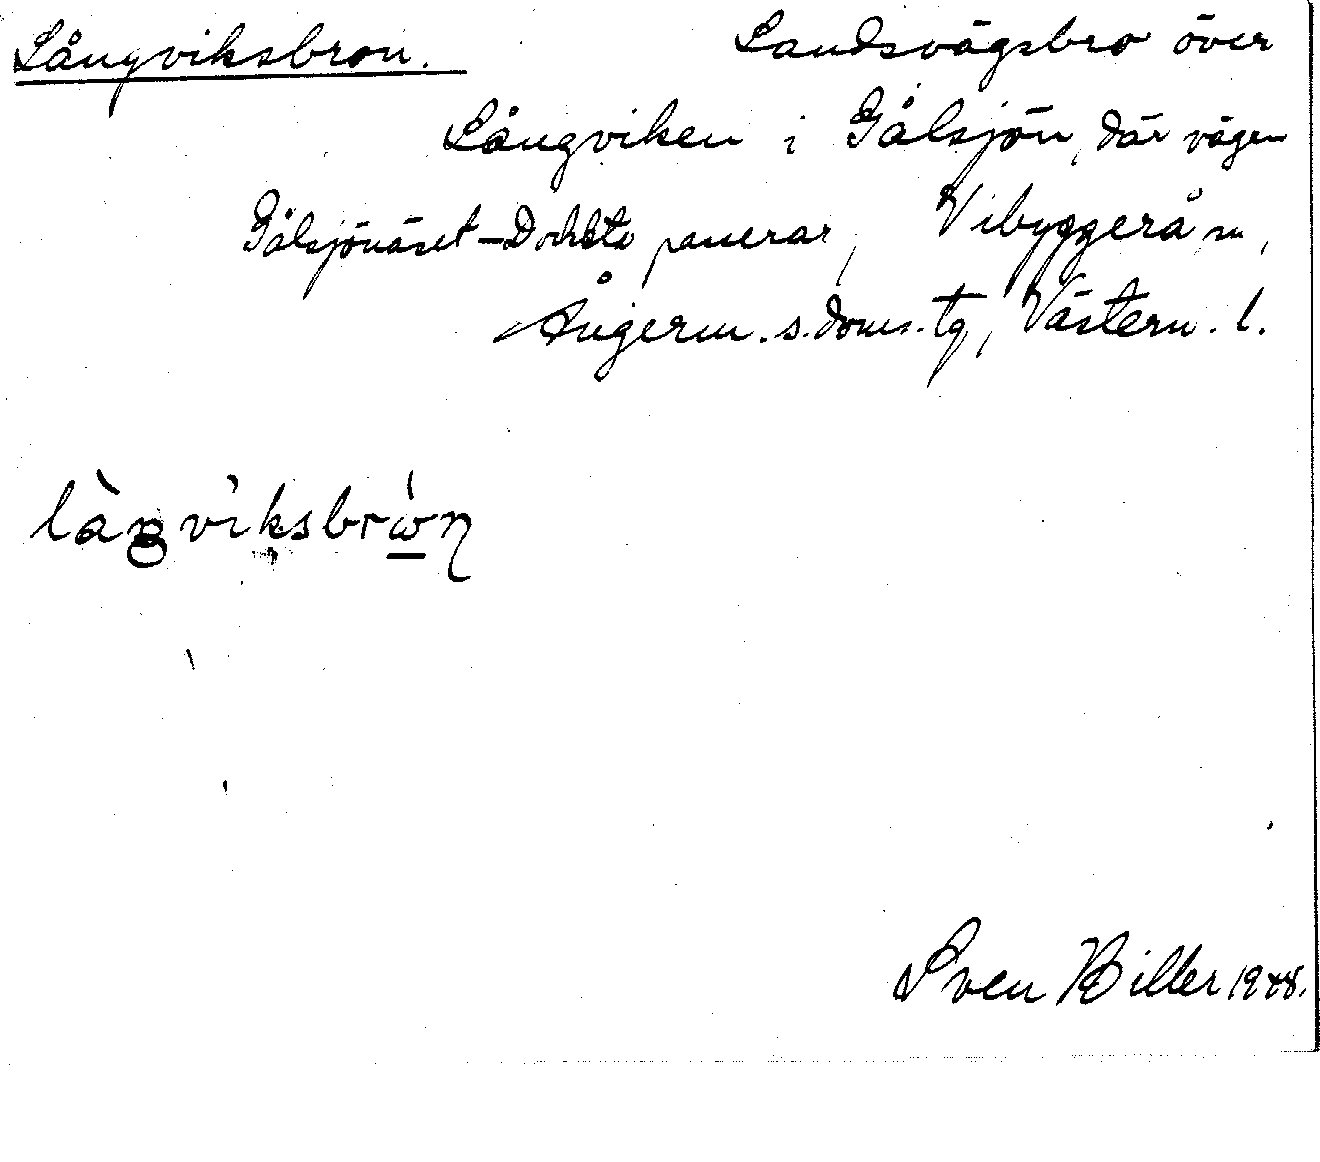 Långviksbron. Landsvägsbro över
Långviken i Gålsjön, där vägen
Gålsjönäset-Docksta passerar, Vibyggerå sn,
Ångerm. s. doms. tg, Västern. l.
làŋviksbrẁn
Sven Biller 1948.